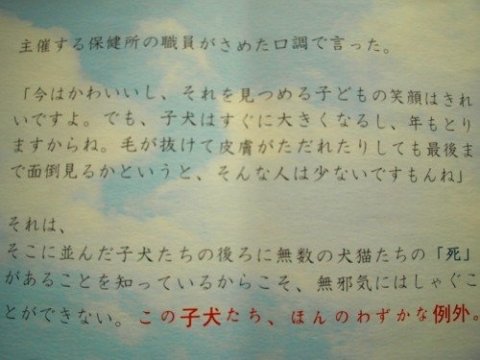 主催する保健所の職員がさめた口調で言った。
「今はかわいいし、それを見つめる子どもの笑顔はきれ
いですよ。でも、子犬はすぐに大きくなるし、年もとり
ますからね。毛が抜けて皮膚がただれたりしても最後ま
で面倒見るかというと、そんな人は少ないですもんね」
それは、
そこに並んだ子犬たちの後ろに無数の犬猫たちの「死」
があることを知っているからこそ、無邪気にはしゃぐこ
とができない。この子犬たち、ほんのわずかな例外。